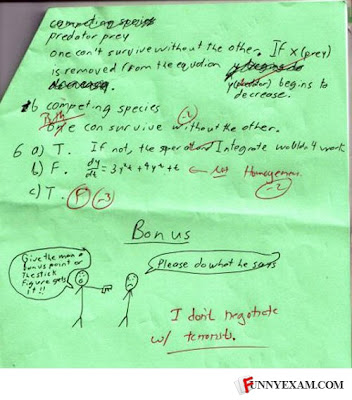 competing species
predator prey
one can't survive without the other. If x (prey)
is removed from the equation
y(predator) begins to
decrease.
1b competing species
Both
One can survive without the other.
-2
6 a) T. If not, the sperat and Integrate wouldn't work
b) F. dy/dt = 3y²x + 4y² + t ← Not Homogenous.
-2
c) T. F -3
Bonus
Give the man a
bonus point or
the stick
figure gets
it!!
Please do what he says
I don't negotiate
w/ terrorists.
FUNNYEXAM.COM